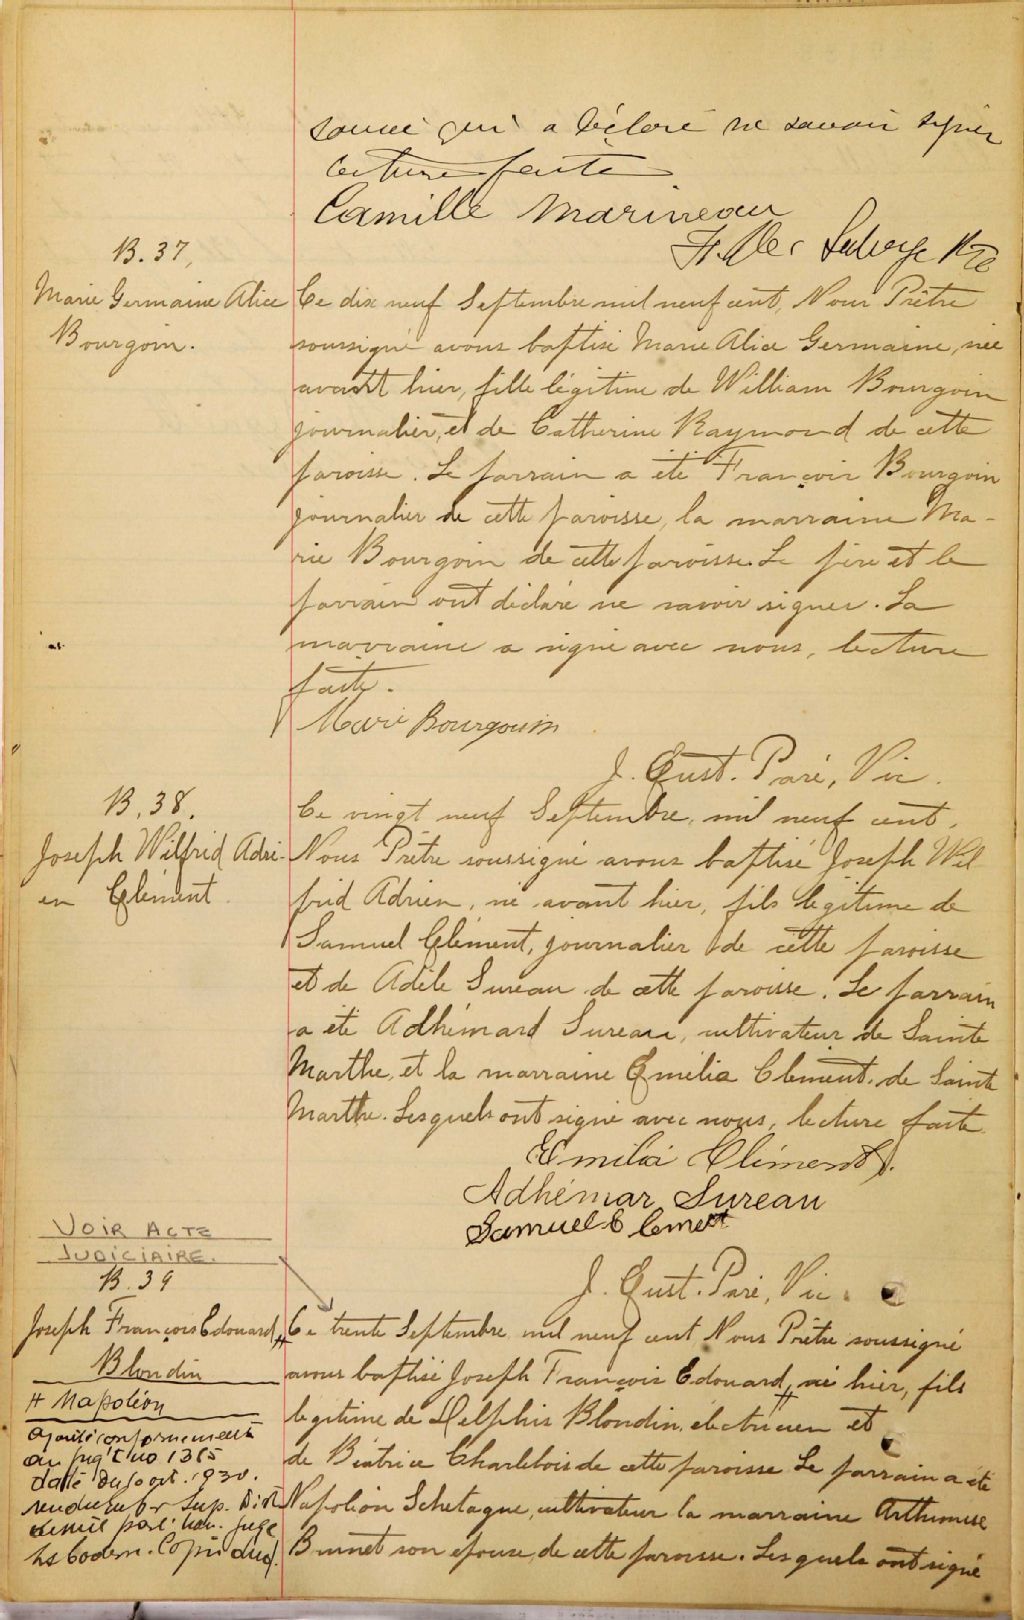 soussi qui a déclaré ne savoir signer
lecture faite
Camille Marineau
B. 37,
Marie Germaine Alice
Bourgoin.
Ce dix neuf Septembre mil neuf cent, Nous Prêtre
soussigné avons baptisé Marie Alice Germaine, née
avant hier, fille légitime de William Bourgoin
journalier, et de Catherine Raymond de cette
paroisse. Le parrain a été François Bourgoin
journalier de cette paroisse, la marraine Ma-
rie Bourgoin de cette paroisse. Le père et le
parrain ont déclaré ne savoir signer. La
marraine a signé avec nous, lecture
faite.
Marie Bourgouin
J. Eust. Paré, Vic.
B. 38.
Joseph Wilfrid Adri-
en Clément
Ce vingt neuf Septembre, mil neuf cent,
Nous Prêtre soussigné avons baptisé Joseph Wil
frid Adrien, né avant hier, fils légitime de
Samuel Clément, journalier de cette paroisse
et de Adèle Sureau de cette paroisse. Le parrain
a été Adhémard Sureau, cultivateur de Sainte
Marthe, et la marraine Emélia Clément, de Sainte
Marthe. Lesquels ont signé avec nous, lecture faite
Emilia Clément.
Adhémar Sureau
Samuel Clement
J. Eust. Paré, Vic.
VOIR ACTE
JUDICIAIRE.
B. 39
Joseph François Edouard
Blondin
# Napoléon
ajouté conformément
au jug't no 1365
daté du 10 oct. 1930.
rendu
par l'hon. juge
Ce trente Septembre mil neuf cent Nous Prêtre soussigné
avons baptisé Joseph François Edouard, # né hier, fils
légitime de Delphis Blondin, électricien et
de Béatrice Charlebois de cette paroisse Le parrain a été
Napoléon Schetagne, cultivateur la marraine Arthémise
Brunet son épouse, de cette paroisse. Lesquels ont signé